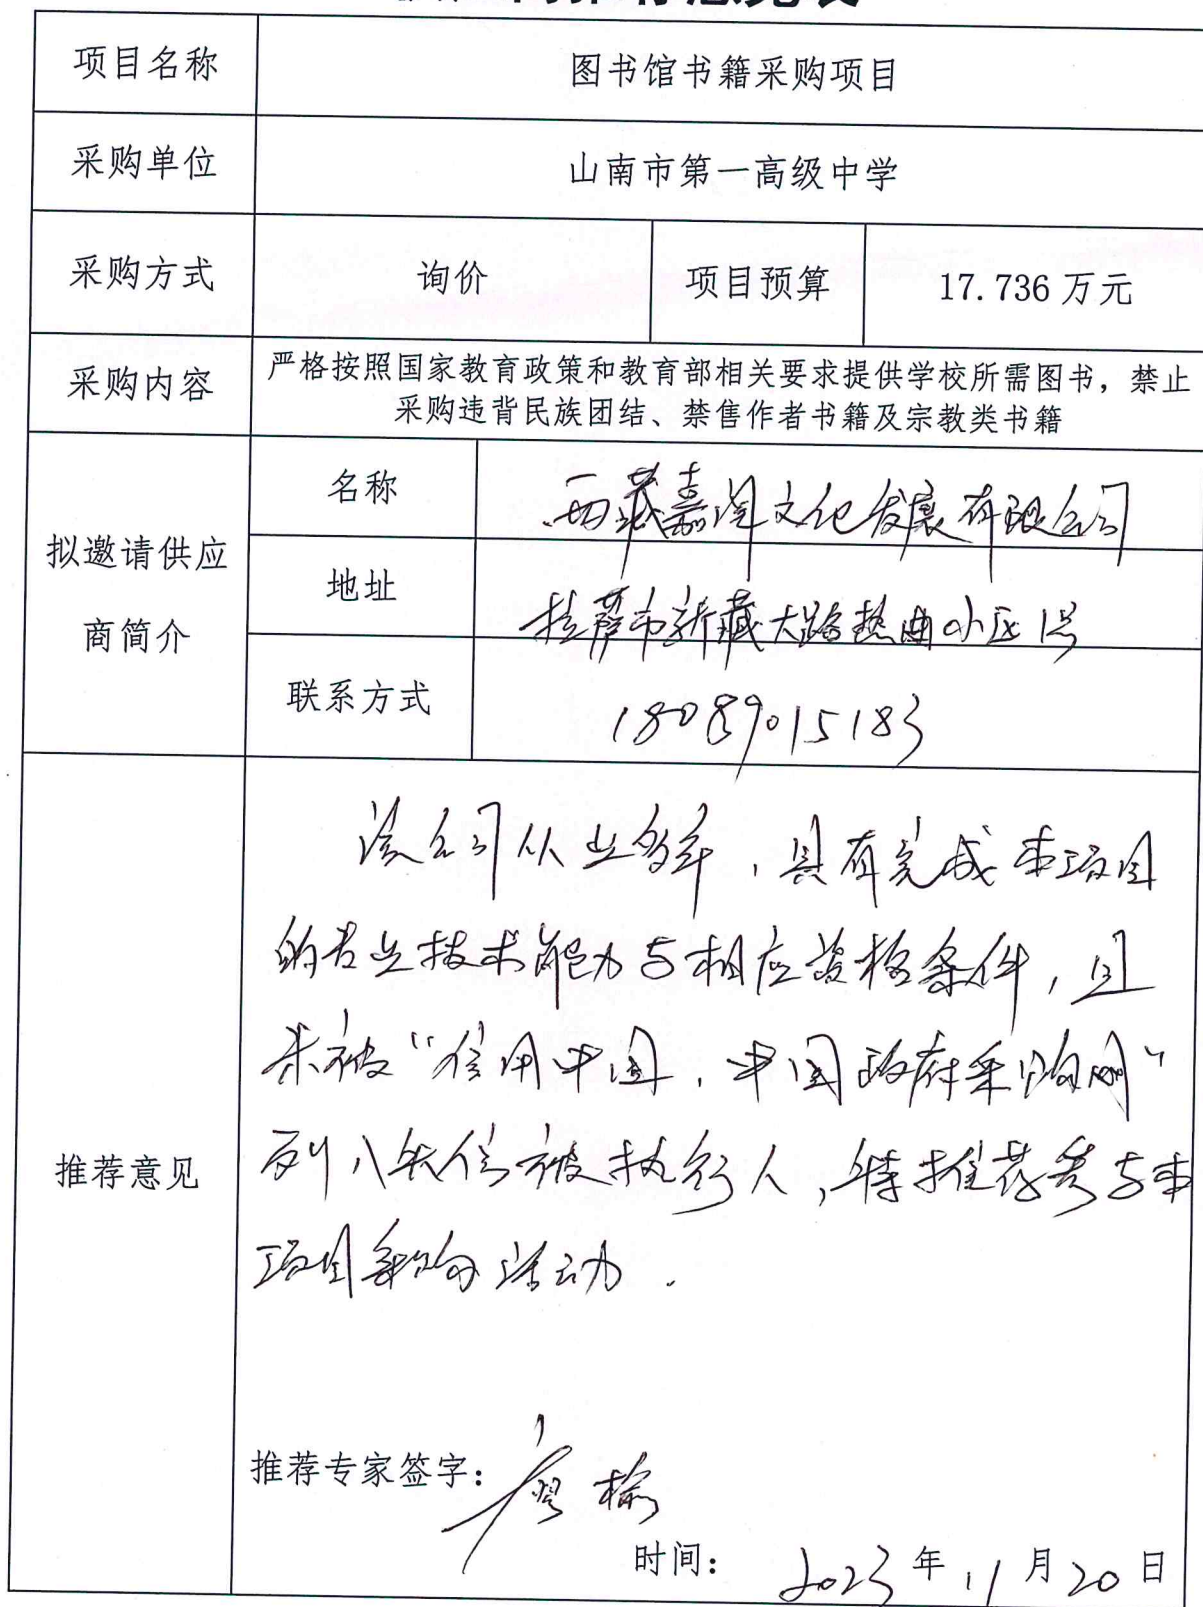 项目名称 图书馆书籍采购项目
采购单位 山南市第一高级中学
采购方式 询价 项目预算 17.736万元
采购内容 严格按照国家教育政策和教育部相关要求提供学校所需图书，禁止
采购违背民族团结、禁售作者书籍及宗教类书籍
拟邀请供应
商简介
名称 西藏嘉泽文化发展有限公司
地址 拉萨市新藏大路热曲小区1号
联系方式 18089015183
推荐意见
该公司从业多年，具有完成本项目
的专业技术能力与相应资格条件，且
未被“信用中国，中国政府采购网”
列入失信被执行人，特推荐参与本
项目采购活动.
推荐专家签字：
时间： 2023年11月20日